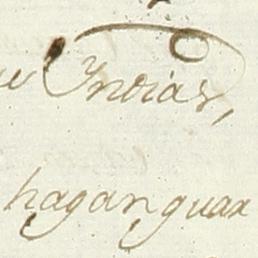 Indias,
hagan guar